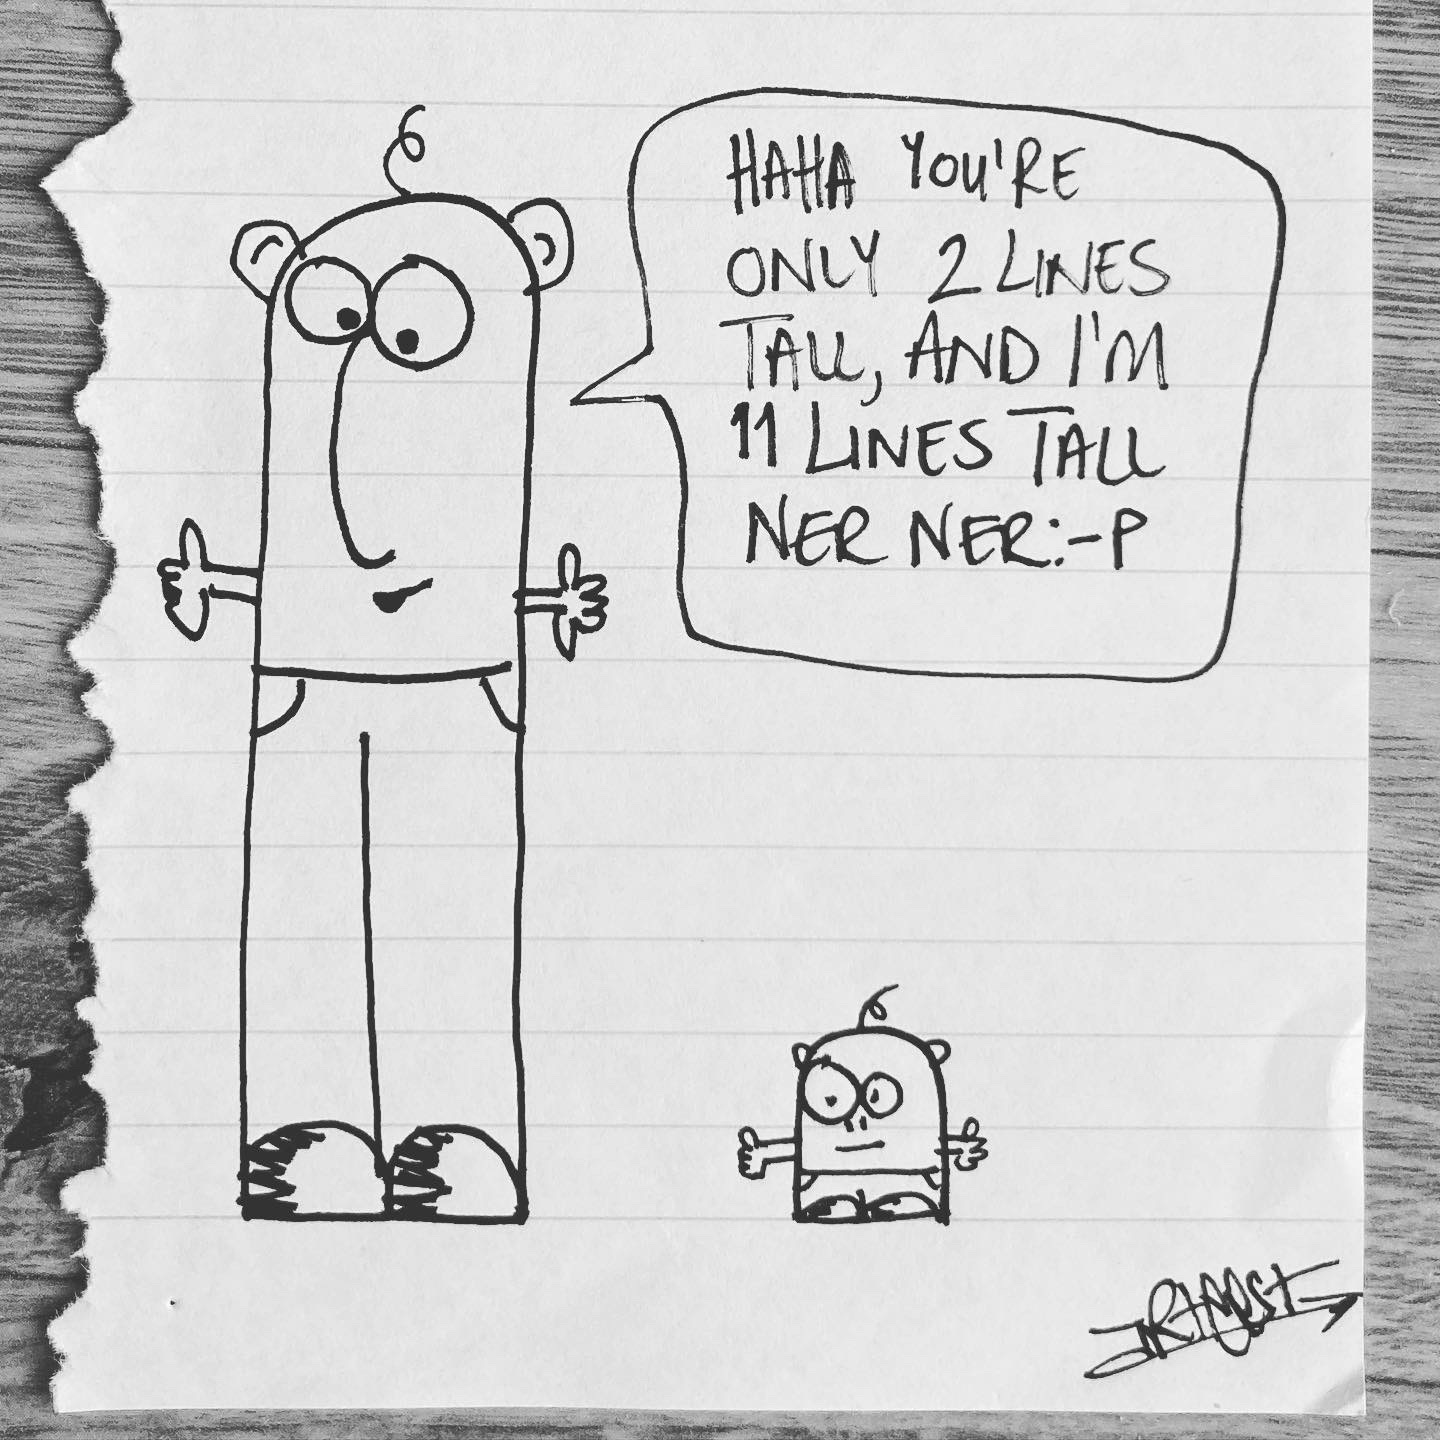 HAHA YOU'RE
ONLY 2 LINES
TALL, AND I'M
11 LINES TALL
NER NER:-P